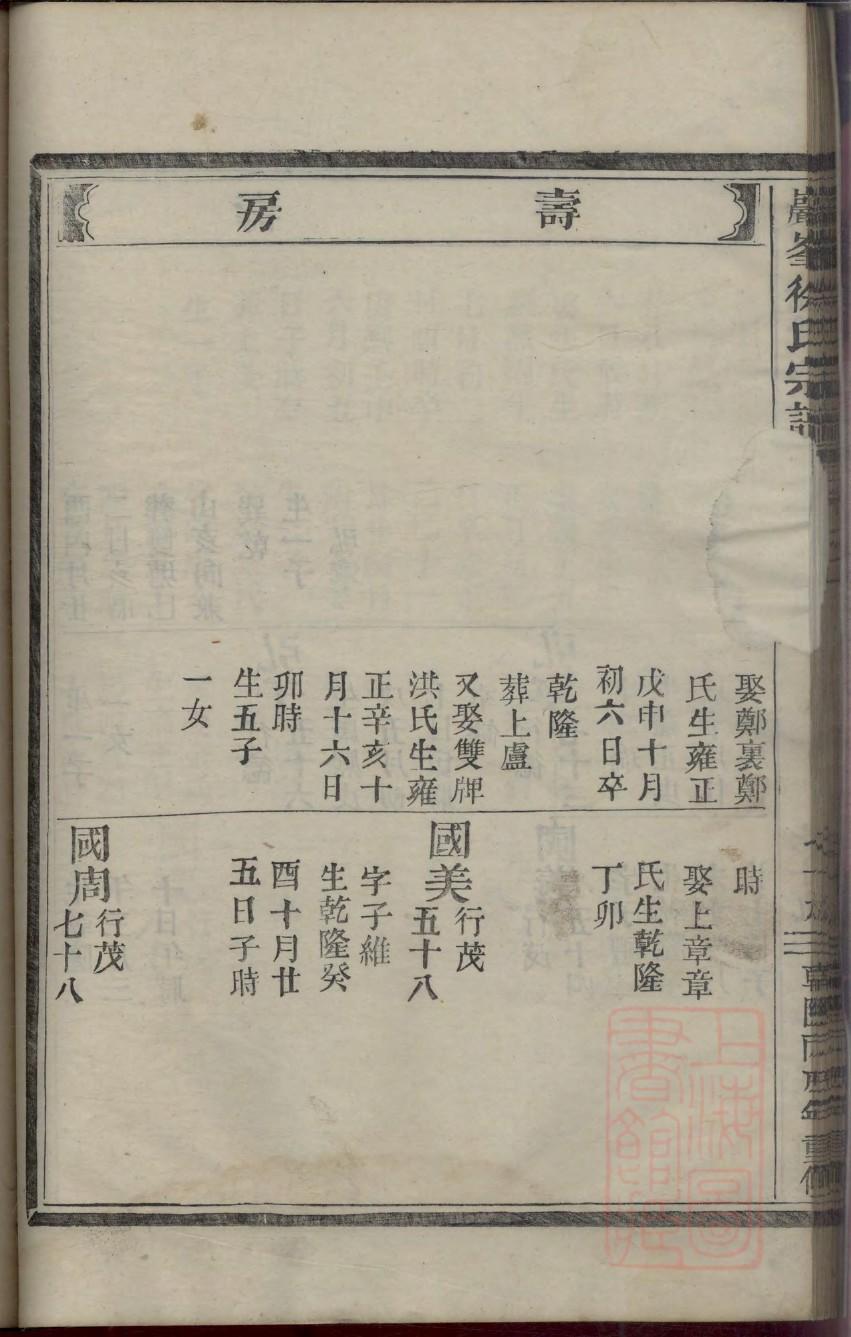 壽房
娶鄭裏鄭
氏生雍正
戊申十月
初六日卒
乾隆
葬上盧
又娶雙牌
洪氏生雍
正辛亥十
月十六日
卯時
生五子
一女
時
娶上章章
氏生乾隆
丁卯
國美行茂
五十八
字子維
生乾隆癸
酉十月廿
五日子時
國周行茂
七十八
徐氏宗譜
上海圖書館藏